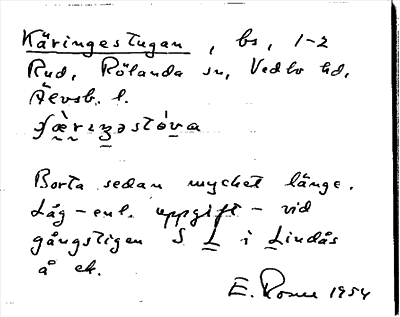 Käringestugan, bs, 1-2
Rud, Rölanda sn, Vedbo hd,
Älvsb. l.
Borta sedan mycket länge.
Låg - enl. uppgift - vid
gångstigen S L i Lindås
å ek.
E. 1954